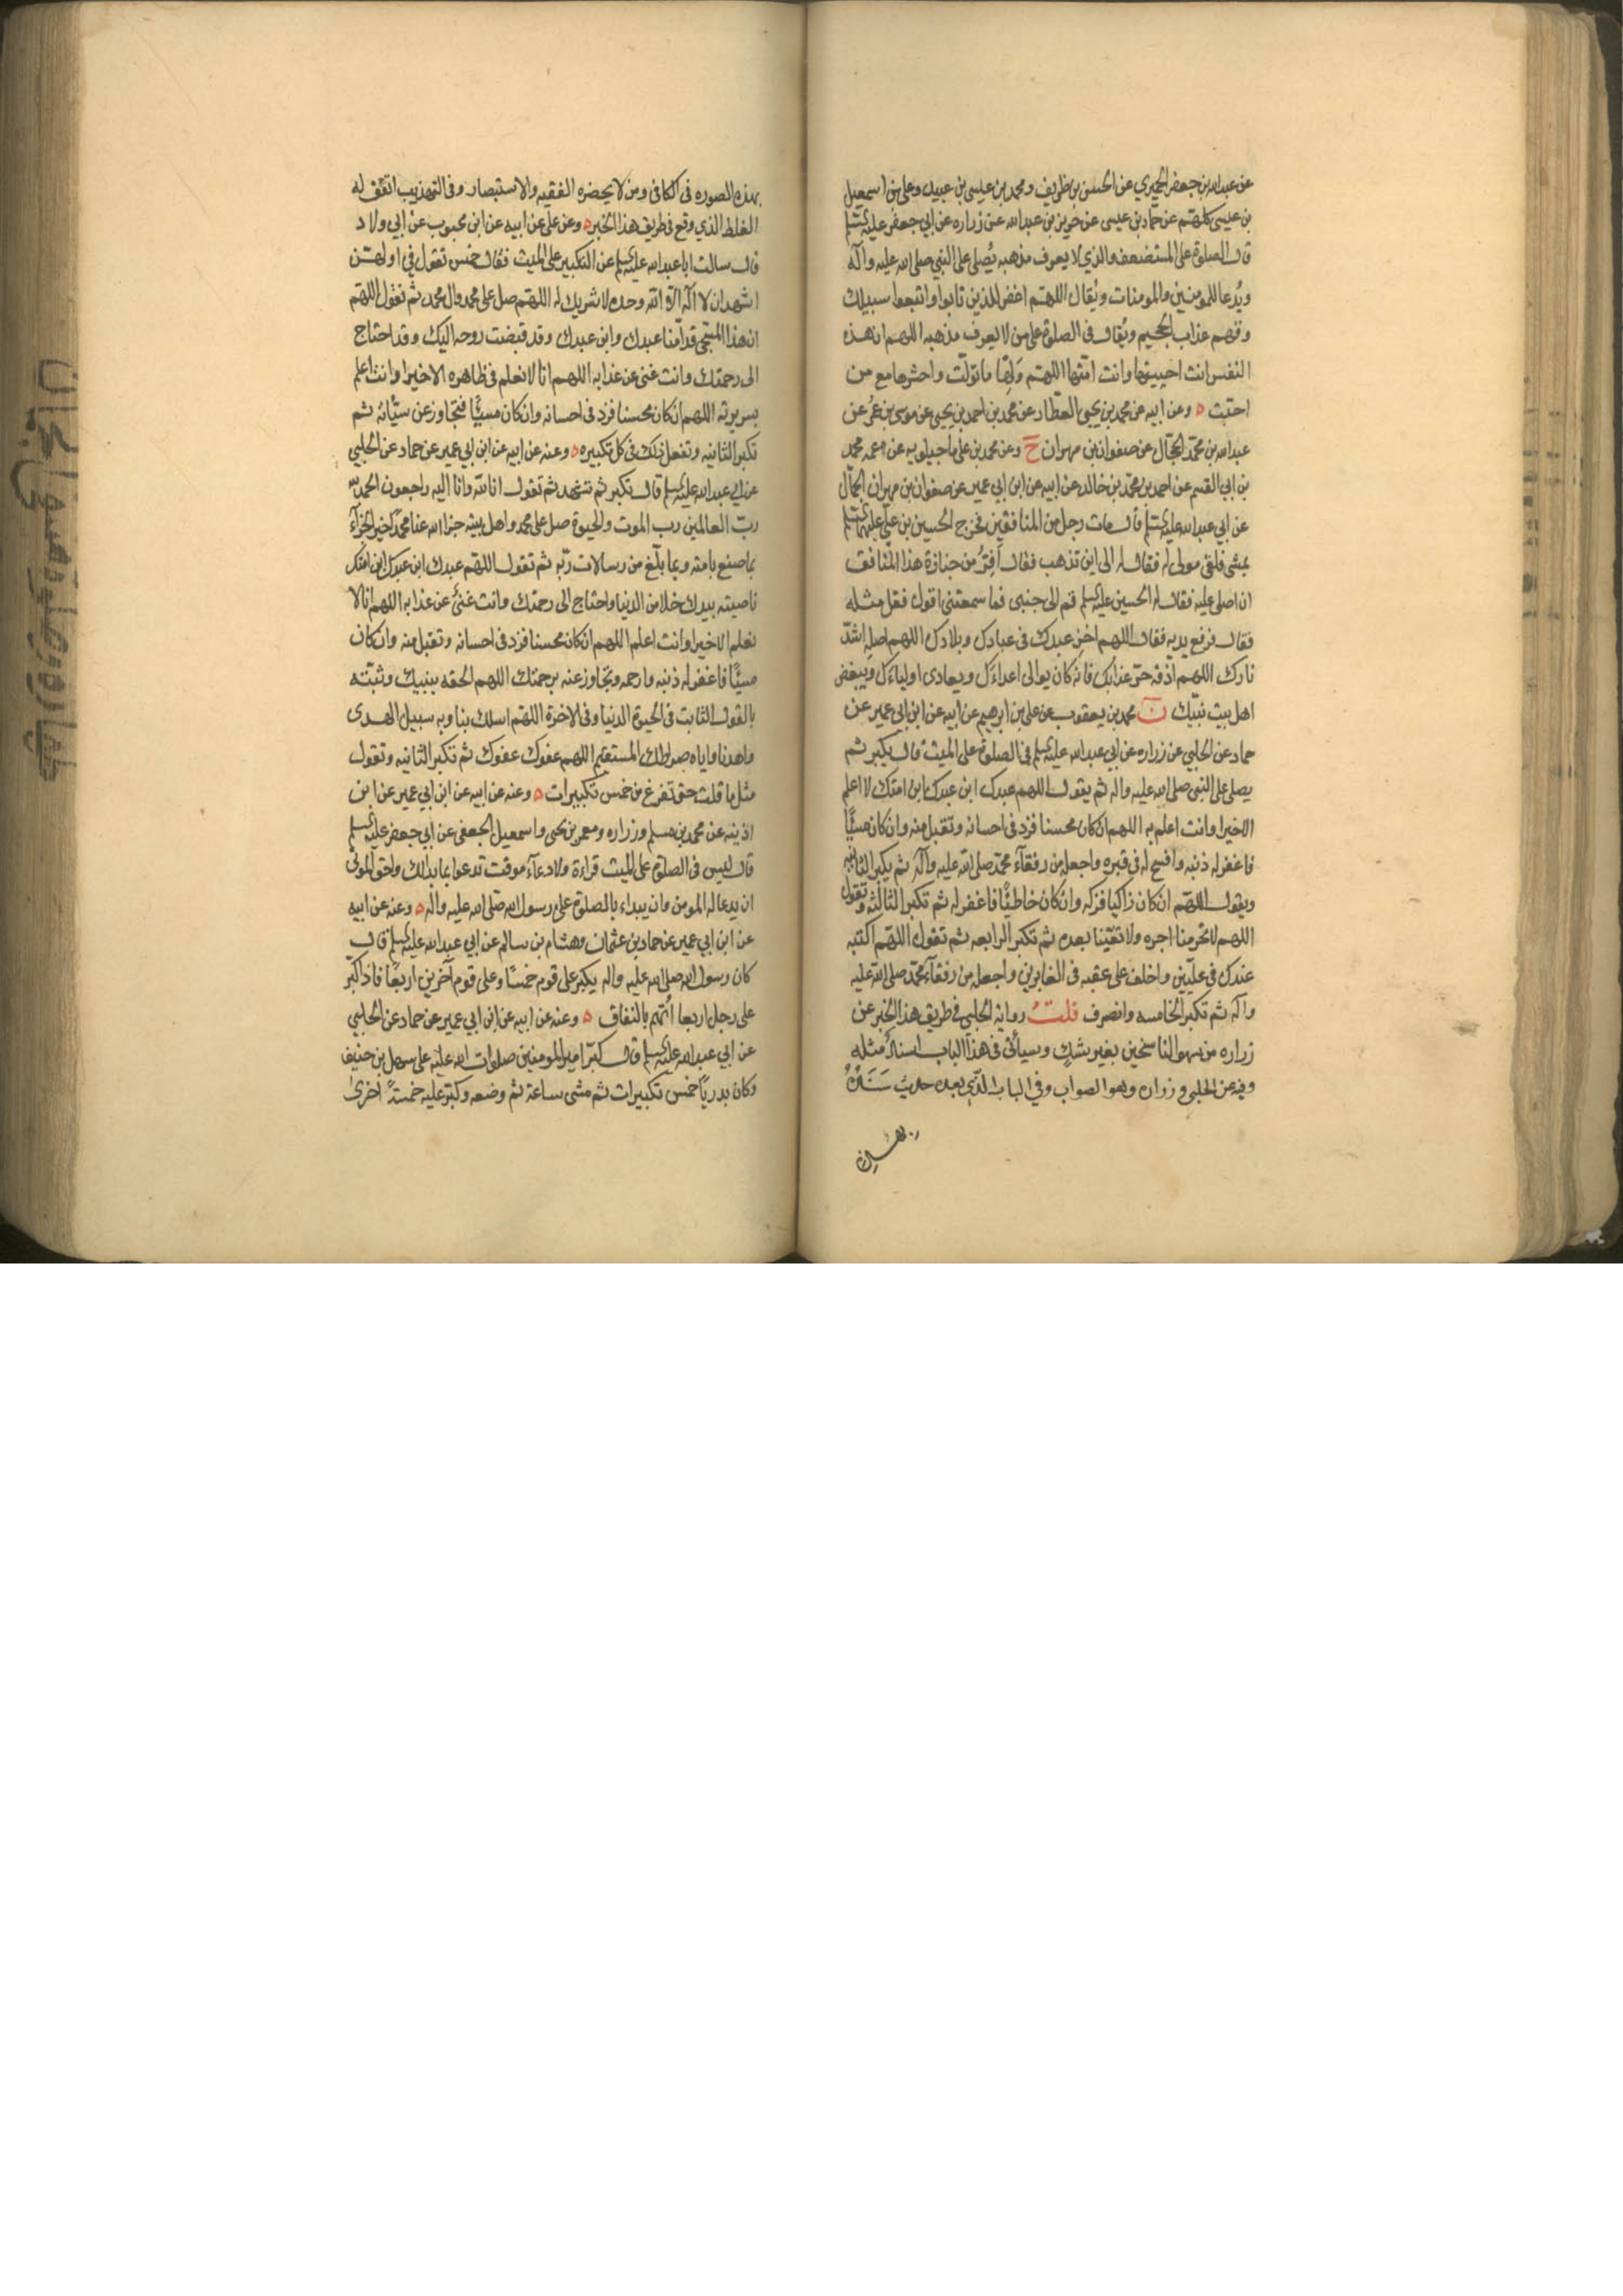 عن عبدالله بن جعفر الحميري عن الحسن بن ظريف ومحمد بن عيسى بن عبيد وعلي بن اسمعيل
بن عيسى كلهم عن حماد بن عيسى عن حريز بن عبدالله عن زراره عن ابي جعفر عليه السلم
قال الصلوة على المستضعف والذي لا يعرف مذهبه يُصلى على النبي صلى الله عليه وآله
ويُدعا للمومنين والمومنات ويُقال اللهم اغفر للذين تابوا واتبعوا سبيلك
وقهم عذاب الجحيم ويُقال في الصلوة على من لا يعرف مذهبه اللهم ان هذه
النفس انت احييتها وانت امتّها اللهم وَلِّها ما تولّت واحشرها مع من
احبّت ه وعن ابيه عن محمد بن يحيى العطّار عن محمد بن احمد بن يحيى عن موسى بن عمُر عن
عبدالله بن محمد الحجّال عن صفوان بن مهران ح وعن محمد بن علي ماجيلويه عن عمه محمد
بن ابي القسم عن احمد بن محمد بن خالد عن ابيه عن ابن ابي عمير عن صفوان بن مهران الجمّال
عن ابي عبدالله عليه السلم قال مات رجل من المنافقين فخرج الحسين بن علي عليهما السلم
يمشي فلقي مولى له فقال له الى اين تذهب فقال اَفِرُّ من جنازة هذا المنافق
ان اصلي عليه فقال له الحسين عليه السلم قم الى جنبي فما سمعتني اقول فقل مثله
فقال فرفع يديه فقال اللهم اخزِ عبدك في عبادك وبلادك اللهم اصلِه اشدّ
نارك اللهم اذقه حرّ عذابك فانه كان يوالي اعداءك ويعادي اولياءك ويبغض
اهل بيت نبيّك ن محمد بن يعقوب عن علي بن ابرهيم عن ابيه عن ابن ابي عمير عن
حماد عن الحلبي عن زراره عن ابي عبدالله عليه السلم في الصلوة على الميت قال يكبر ثم
يصلي على النبي صلى الله عليه واله ثم يقول اللهم عبدك ابن عبدك ابن امتك لا اعلم
الا خيرا وانت اعلم به اللهم ان كان محسنا فزد في احسانه وتقبل منه وان كان مسيئًا
فاغفر له ذنبه وافسح له في قبره واجعله من رفقآء محمد صلى الله عليه وآله ثم يكبر الثانيه
ويقول اللهم ان كان زاكيا فزكه وان كان خاطيًا فاغفر له ثم تكبر الثالثه وتقول
اللهم لا تحرمنا اجره ولا تفتنّا بعده ثم تكبر الرابعه ثم تقول اللهم اكتبه
عندك في عليّين واخلف على عقبه في الغابرين واجعله من رفقآء محمد صلى الله عليه
وآله ثم تكبر الخامسه وانصرف قلتُ رواية الحلبي في طريق هذا الخبر عن
زراره من سهو الناسخين بغير شكٍ وسيأتي في هذا الباب اسنادٌ مثله
وفيه عن الحلبي و زراره وهو الصواب وفي الباب الذي بعده حديث سَنَدُهُ
بهذه
بهذه الصوره في الكافي ومن لا يحضره الفقيه والاستبصار وفي التهذيب اتفق له
الغلط الذي وقع في طريق هذا الخبر ه وعن علي عن ابيه عن ابن محبوب عن ابي ولاد
قال سالت ابا عبدالله عليه السلم عن التكبير على الميت فقال خمس تقول في اولهنّ
اشهد ان لا اله الا الله وحده لا شريك له اللهم صل على محمد وال محمد ثم تقول اللهم
ان هذا المسجّى قدّامنا عبدك وابن عبدك وقد قبضت روحه اليك وقد احتاج
الى رحمتك وانت غني عن عذابه اللهم انا لا نعلم في ظاهره الا خيرا وانت اعلم
بسريرته اللهم ان كان محسنا فزد في احسانه وان كان مسيئًا فتجاوز عن سيّأته ثم
تكبر الثانيه وتفعل ذلك في كل تكبيره ه وعنه عن ابيه عن ابن ابي عمير عن حماد عن الحلبي
عن ابي عبدالله عليه السلم قال تكبر ثم تشهد ثم تقول انا لله وانا اليه راجعون الحمد لله
ربّ العالمين رب الموت والحيوة صل على محمد واهل بيته جزا الله عنا محمدًا خير الجزآء
بما صنع بامته وبما بلّغ من رسالات ربّه ثم تقول اللهم عبدك ابن عبدك ابن امتك
ناصيته بيدك خلا من الدنيا واحتاج الى رحمتك وانت غنيٌّ عن عذابه اللهم انا لا
نعلم الا خيرا وانت اعلم اللهم ان كان محسنا فزد في احسانه وتقبل منه وان كان
مسيًّا فاغفر له ذنبه وارحمه وتجاوز عنه برحمتك اللهم الحقه بنبيك وثبّته
بالقول الثابت في الحيوة الدنيا وفي الاخرة اللهم اسلك بنا وبه سبيل الهدى
واهدنا واياه صراطك المستقيم اللهم عفوك عفوك ثم تكبر الثانيه وتقول
مثل ما قلت حتى تفرغ من خمس تكبيرات ه وعنه عن ابيه عن ابن ابي عمير عن ابن
اذينه عن محمد بن مسلم وزراره ومعمر بن يحيى واسمعيل الجعفي عن ابي جعفر عليه السلم
قال ليس في الصلوة على الميت قراءة ولا دعآء موقت تدعوا بما بدا لك واحق الموتى
ان يدعا له المومن وان يبداء بالصلوة على رسول الله صلى الله عليه واله ه وعنه عن ابيه
عن ابن ابي عمير عن حماد بن عثمان وهشام بن سالم عن ابي عبدالله عليه السلم قال
كان رسول الله صلى الله عليه واله يكبر على قوم خمسًا وعلى قوم آخرين اربعًا فاذا كبّر
على رجل اربعا اُتّهم بالنفاق ه وعنه عن ابيه عن ابن ابي عمير عن حماد عن الحلبي
عن ابي عبدالله عليه السلم قال كبّر امير المومنين صلوات الله عليه على سهل بن حنيف
وكان بدريًّا خمس تكبيرات ثم مشى ساعة ثم وضعه وكبّر عليه خمسة اخرى